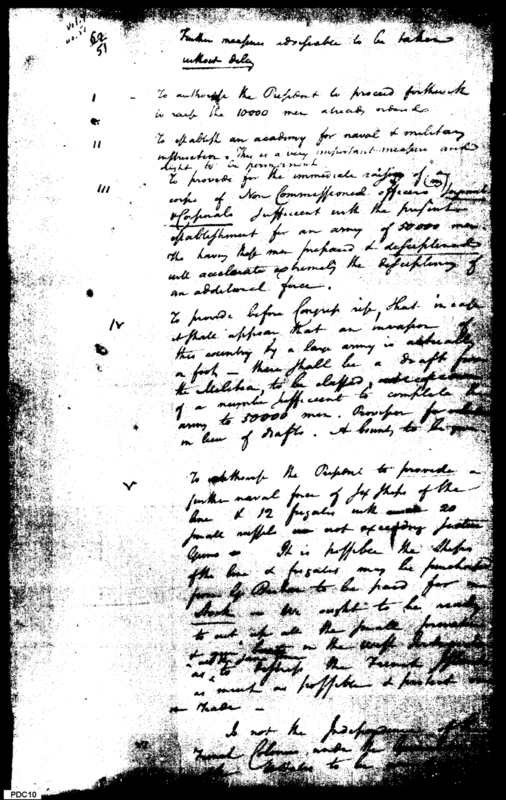 62
51
Further measures adviseable to be taken
without delay
I To authorise the President to proceed forthwith
to raise the 10000 men already ordered
II To establish an academy for naval & military
instruction. This is a very important measure and
ought to be permanent
III To provide for the immediate raising of a
corps of Non Commissioned officers
& Corporals sufficient with the present
establishment for an army of 50000 men.
The having these men prepared & disciplined
will accelerate extremely the disciplining of
an additional force.
IV To provide before Congress rise, that in case
it shall appear that an invasion of
this country by a large army is actually
a foot – there shall be a draft from
the Militia, to be classed,
of a number sufficient to complete the
army to 50000 men. Provision for
in lieu of drafts. A bounty to the
V To authorise the President to provide a
further naval force of six ships of the
line & 12 frigates with 20
small vessels not exceeding sixteen
Guns – It is possible the ships
of the line & frigates may be purchased
from G Britain to be paid for in
Stock – We ought to be ready
to cut up all the small privateers
& in the West Indies
as to distress the French
as much as possible & protect
our Trade –
VI Is not the Independency of the
French Colonies under the
to be
PDC10